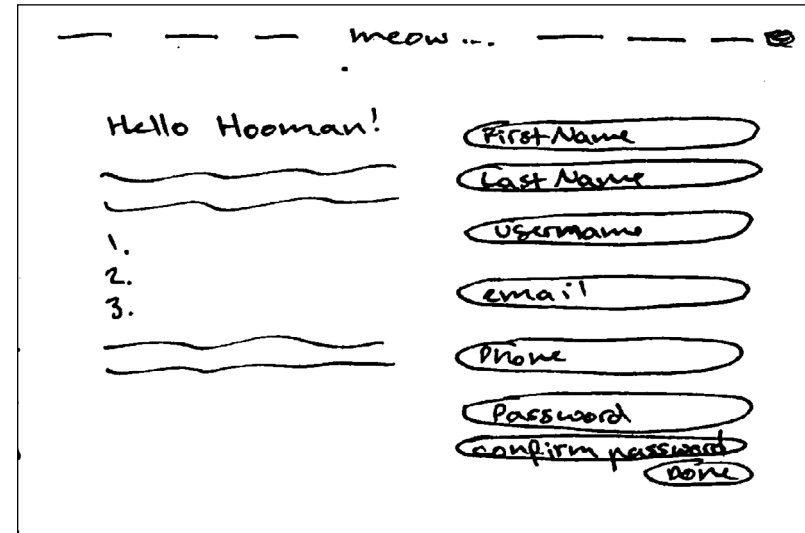 meow...
Hello Hooman!
1.
2.
3.
First Name
Last Name
username
email
Phone
Password
confirm password
Done